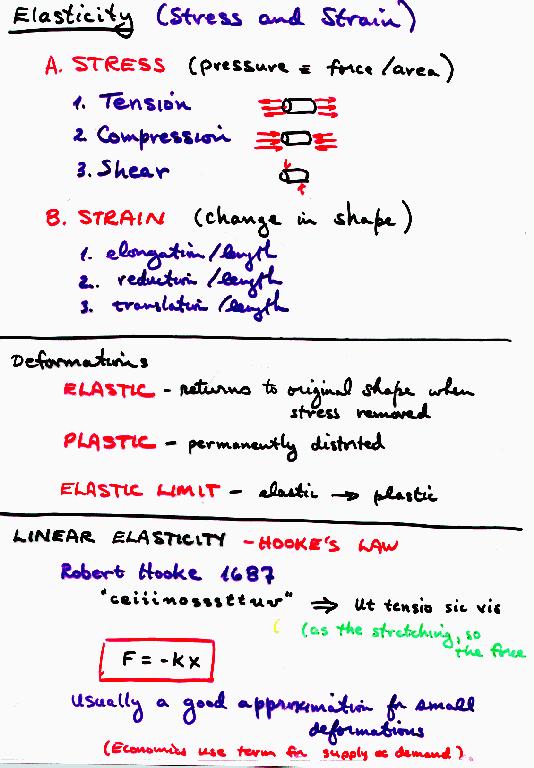 Elasticity (Stress and Strain)
A. STRESS (pressure = force/area)
1. Tension
2. Compression
3. Shear
B. STRAIN (change in shape)
1. elongation/length
2. reduction/length
3. translation/length
Deformations
ELASTIC - returns to original shape when
stress removed
PLASTIC - permanently distorted
ELASTIC LIMIT - elastic → plastic
LINEAR ELASTICITY - HOOKE'S LAW
Robert Hooke 1687
"ceiiinosssttuv" ⇒ Ut tensio sic vis
(as the stretching, so
the force
F = -kx
Usually a good approximation for small
deformations
(Economics use term for supply & demand).